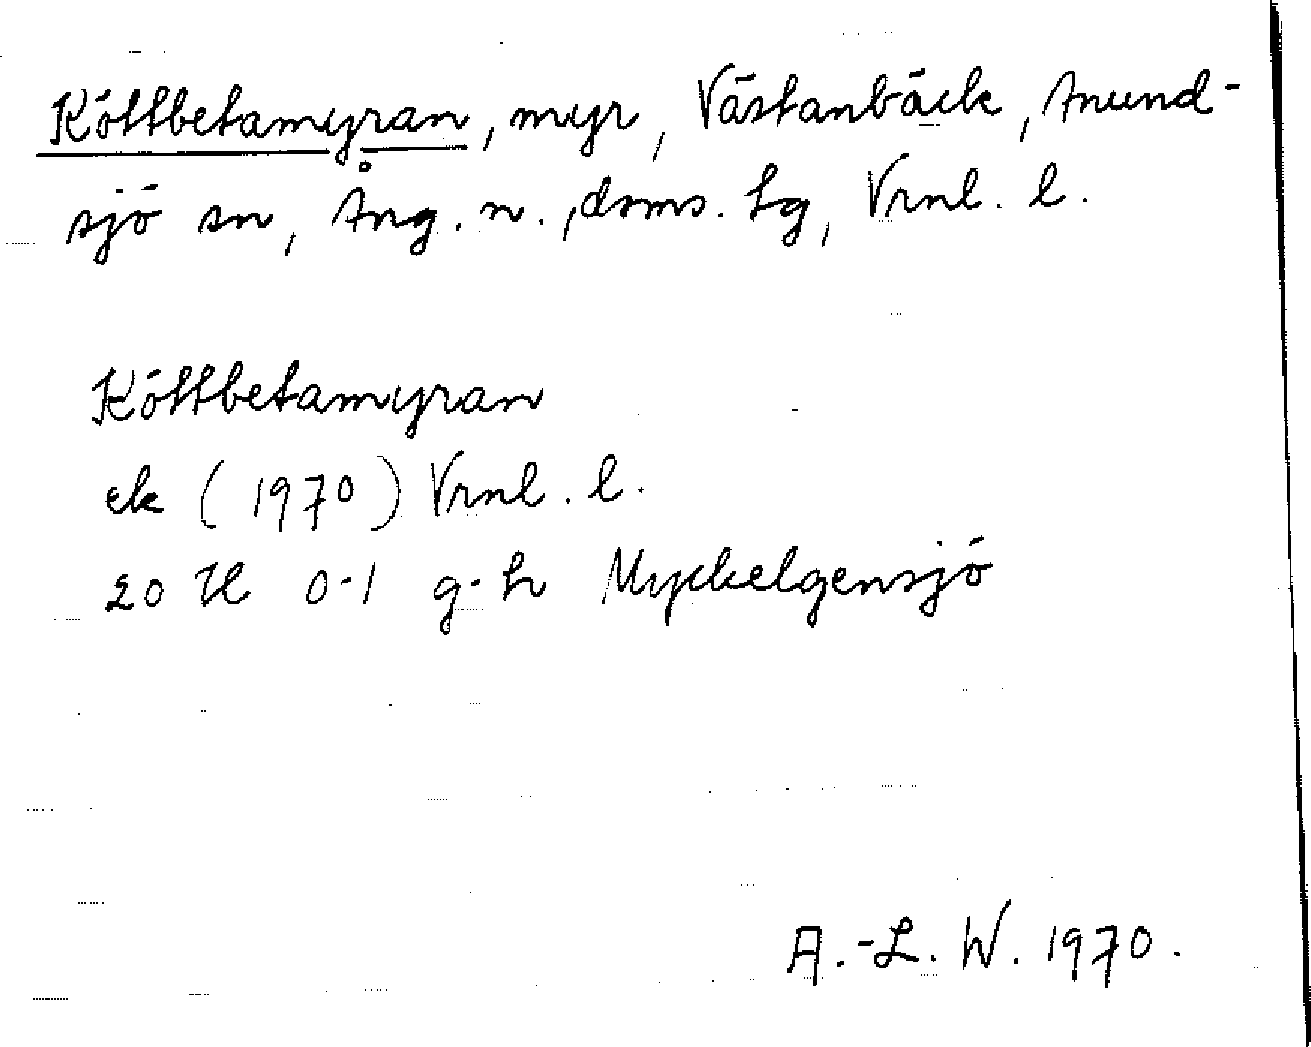 Köttbetamyran, myr, Västanbäck, Anund-
sjö sn, Ång. n., dsms. hg, Vrnl. l.
Köttbetamyran
ek (1970) Vrnl. l.
20 H 0-1 g-h Myckelgensjö
A.-L. W. 1970.